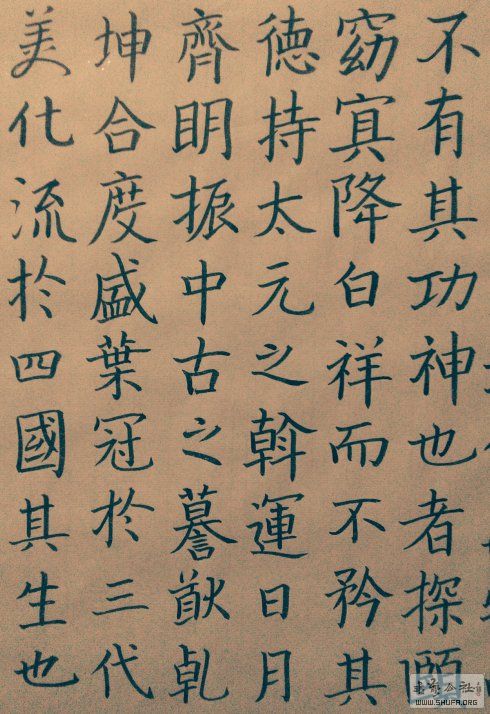 不有其功神也者探
窈冥降白祥而不矜其
徳持太元之斡運日月
齊明振中古之謩猷乹
坤合度盛葉冠於三代
美化流於四國其生也
WWW.SHUFA.ORG